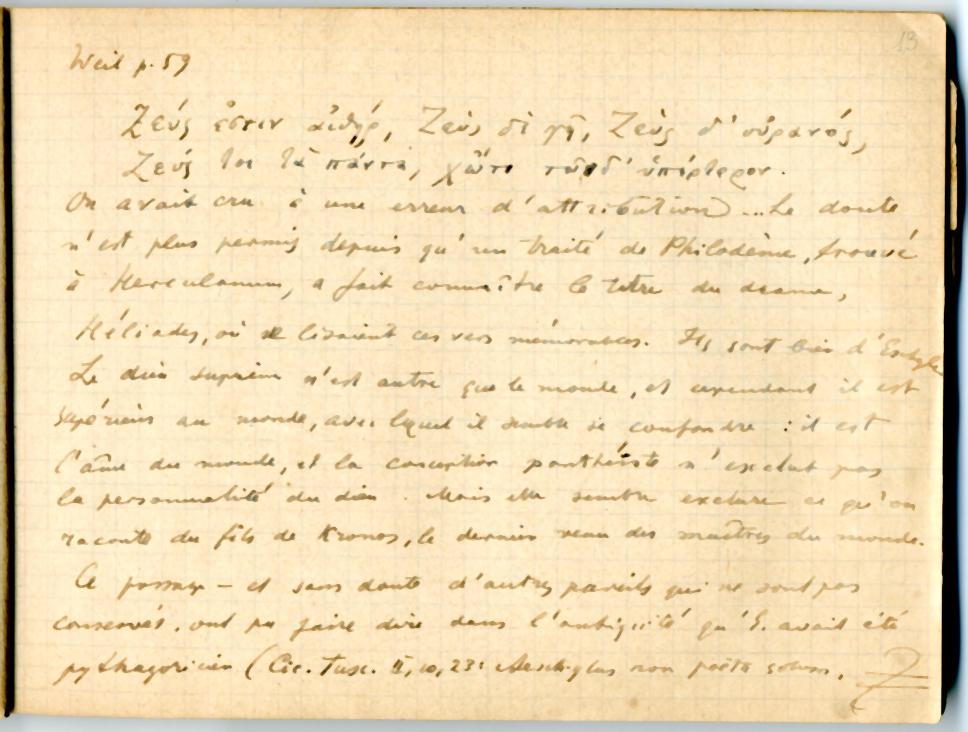 13
Weil p. 59
Ζεύς ἐστιν αἰθήρ, Ζεὺς δὲ γῆ, Ζεὺς δ' οὐρανός,
Ζεύς τοι τὰ πάντα, χὤτι τῶνδ' ὑπέρτερον.
On avait cru à une erreur d'attribution... Le doute
n'est plus permis depuis qu'un traité de Philodème, trouvé
à Herculanum, a fait connaître le titre du drame,
Héliades, où se lisaient ces vers mémorables. Ils sont bien d'Eschyle
Le dieu suprême n'est autre que le monde, et cependant il est
supérieur au monde, avec lequel il semble se confondre : il est
l'âme du monde, et la conception panthéiste n'exclut pas
la personnalité du dieu. Mais elle semble exclure ce qu'on
raconte du fils de Kronos, le dernier venu des maîtres du monde.
Ce passage – et sans doute d'autres pareils qui ne sont pas
conservés, ont pu faire dire dans l'antiquité qu'E. avait été
pythagoricien (Cic. Tusc. II, 10, 23: Aeschylus non poeta solum,